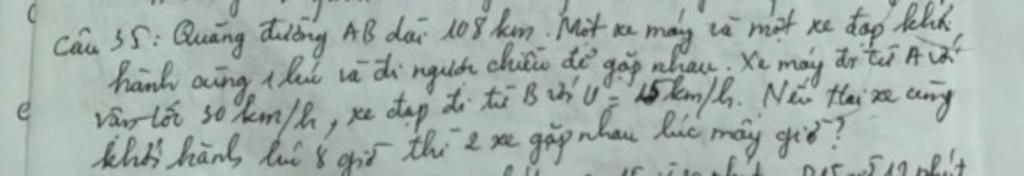 Câu 35: Quãng đường AB dài 108 km. Một xe máy và một xe đạp khởi
hành cùng 1 lúc và đi ngược chiều để gặp nhau. Xe máy đi từ A với
vận tốc 30 km/h, xe đạp đi từ B với v = 15 km/h. Nếu Hai xe cùng
khởi hành lúc 8 giờ thì 2 xe gặp nhau lúc mấy giờ?